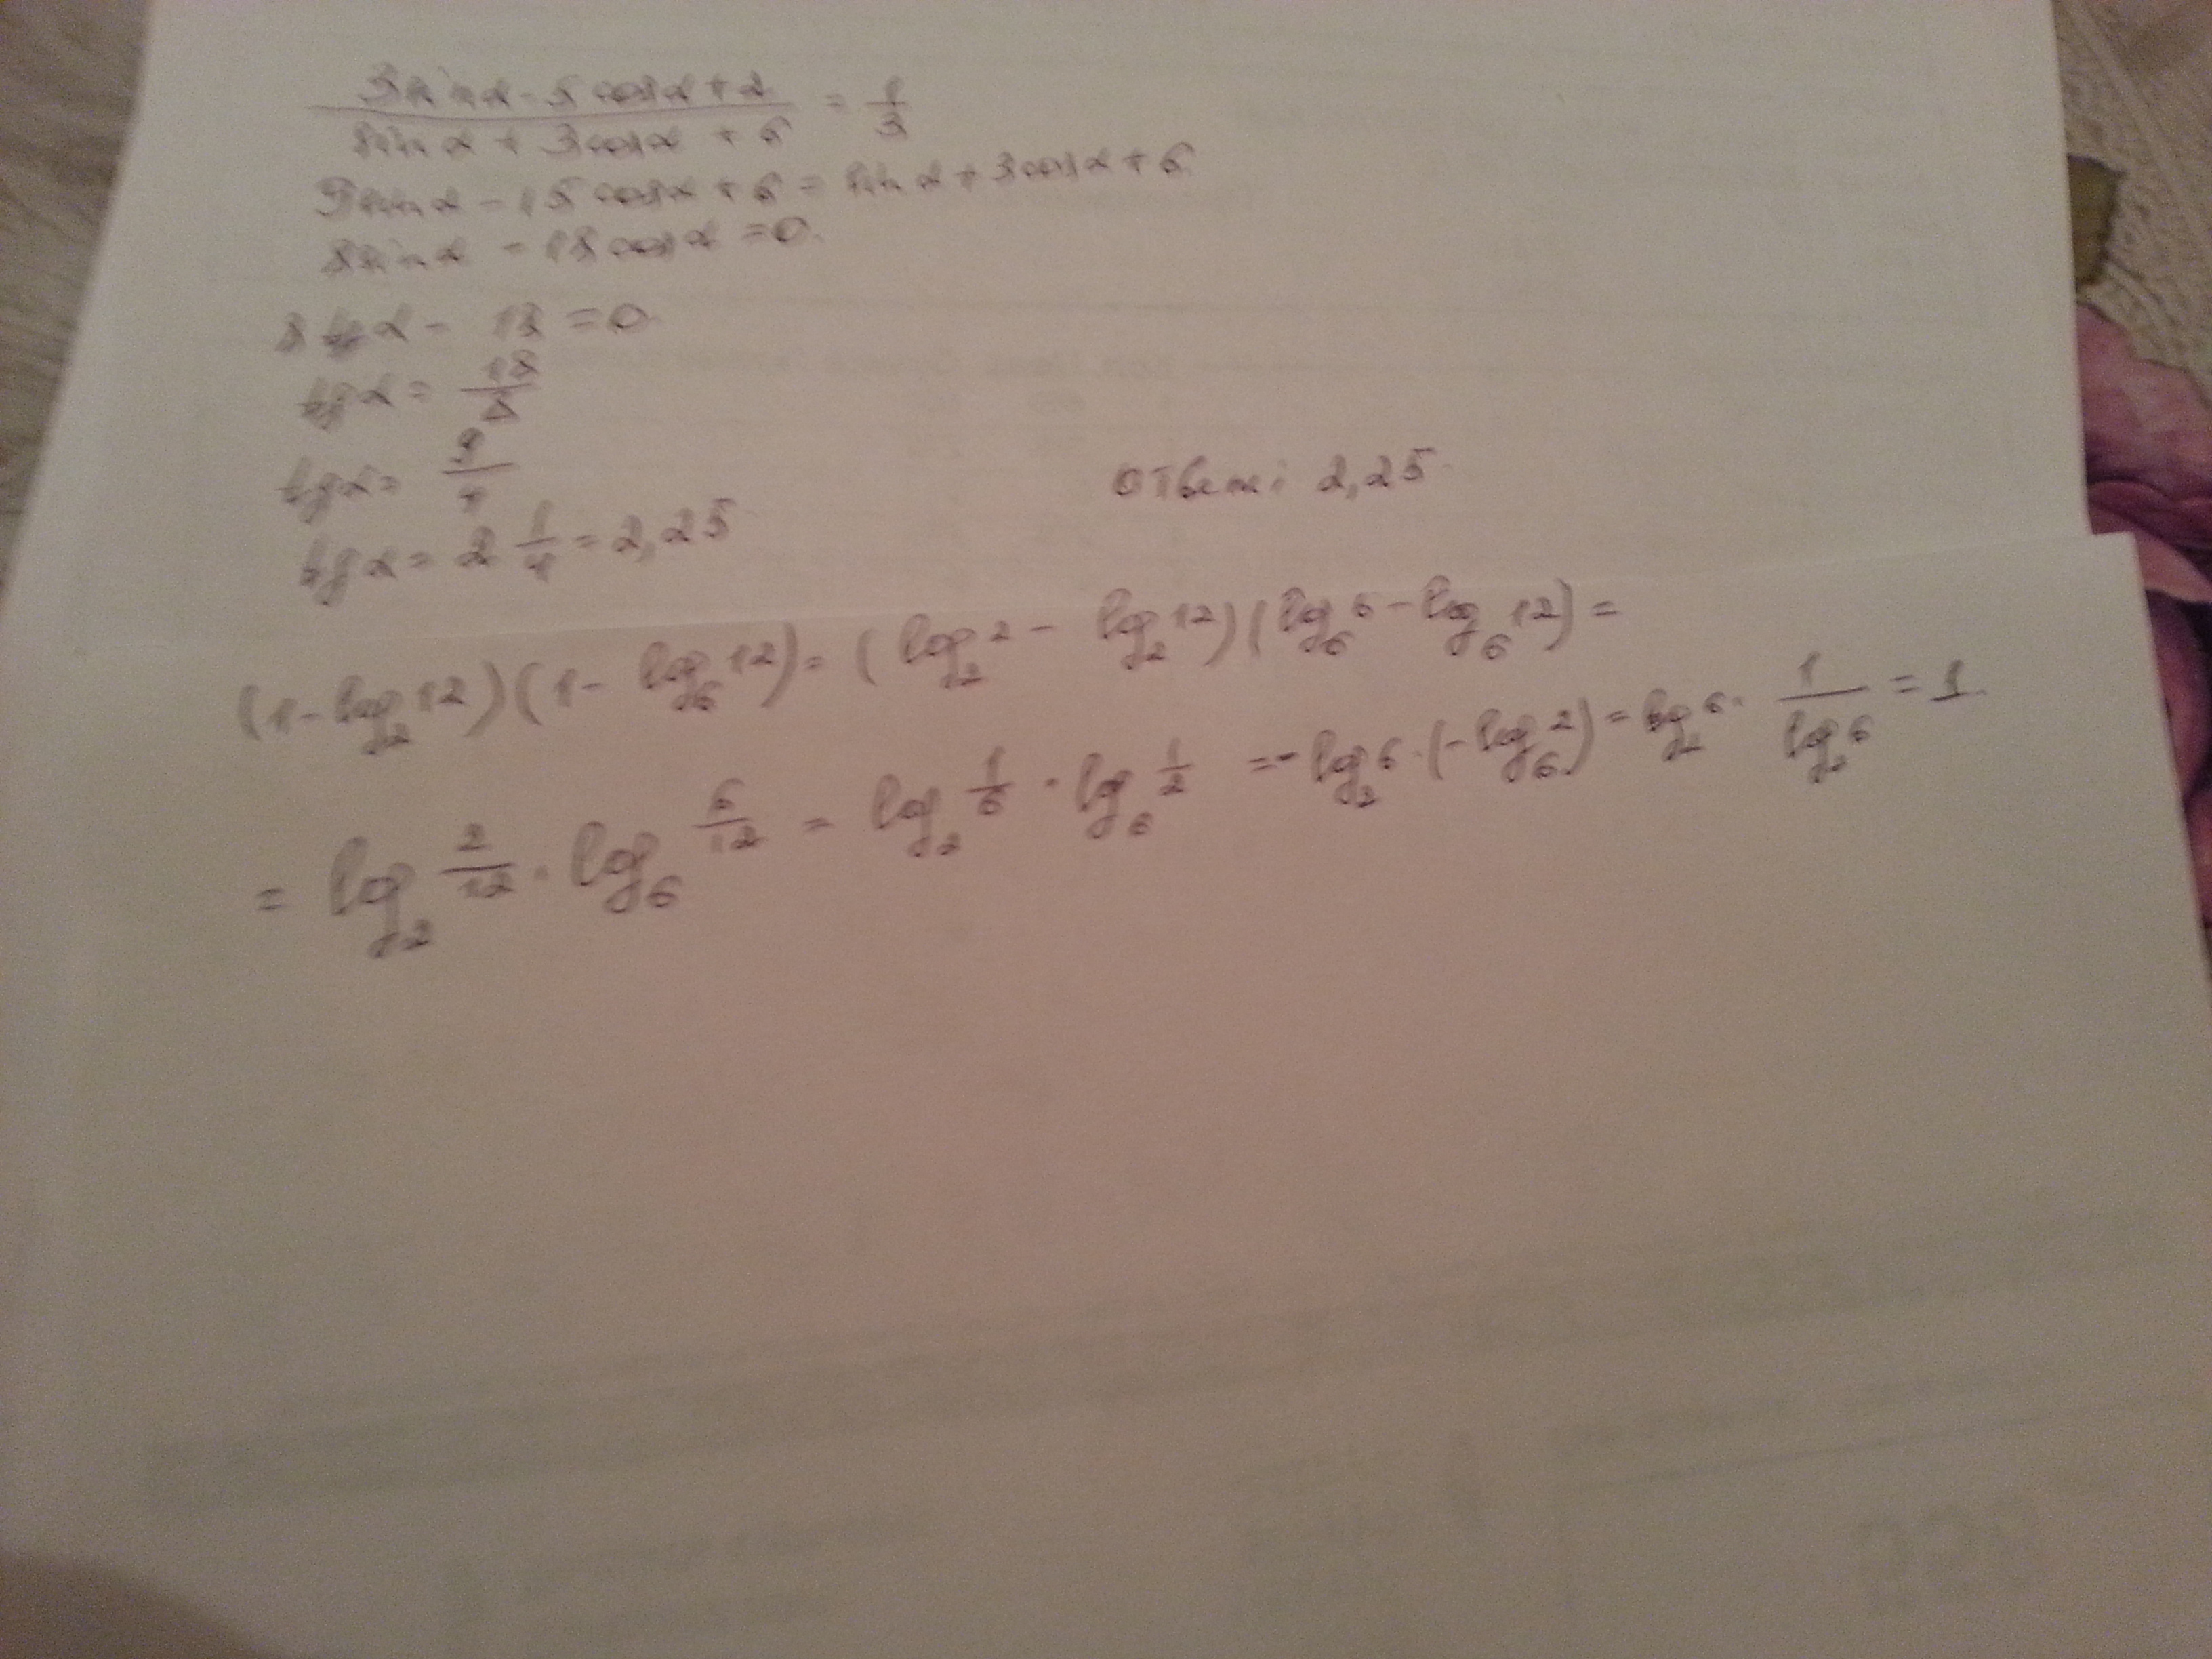 (3sinα - 5cosα + 2)/(sinα + 3cosα + 6) = 1/3
9sinα - 15cosα + 6 = sinα + 3cosα + 6
8sinα - 18cosα = 0.
8tgα - 18 = 0
tgα = 18/8
tgα = 9/4
tgα = 2 1/4 = 2,25
Ответ: 2,25
(1 - log₂12)(1 - log₆12) = (log₂2 - log₂12)(log₆6 - log₆12) =
= log₂ 2/12 · log₆ 6/12 = log₂ 1/6 · log₆ 1/2 = -log₂6·(-log₆2) = log₂6 · 1/log₂6 = 1.